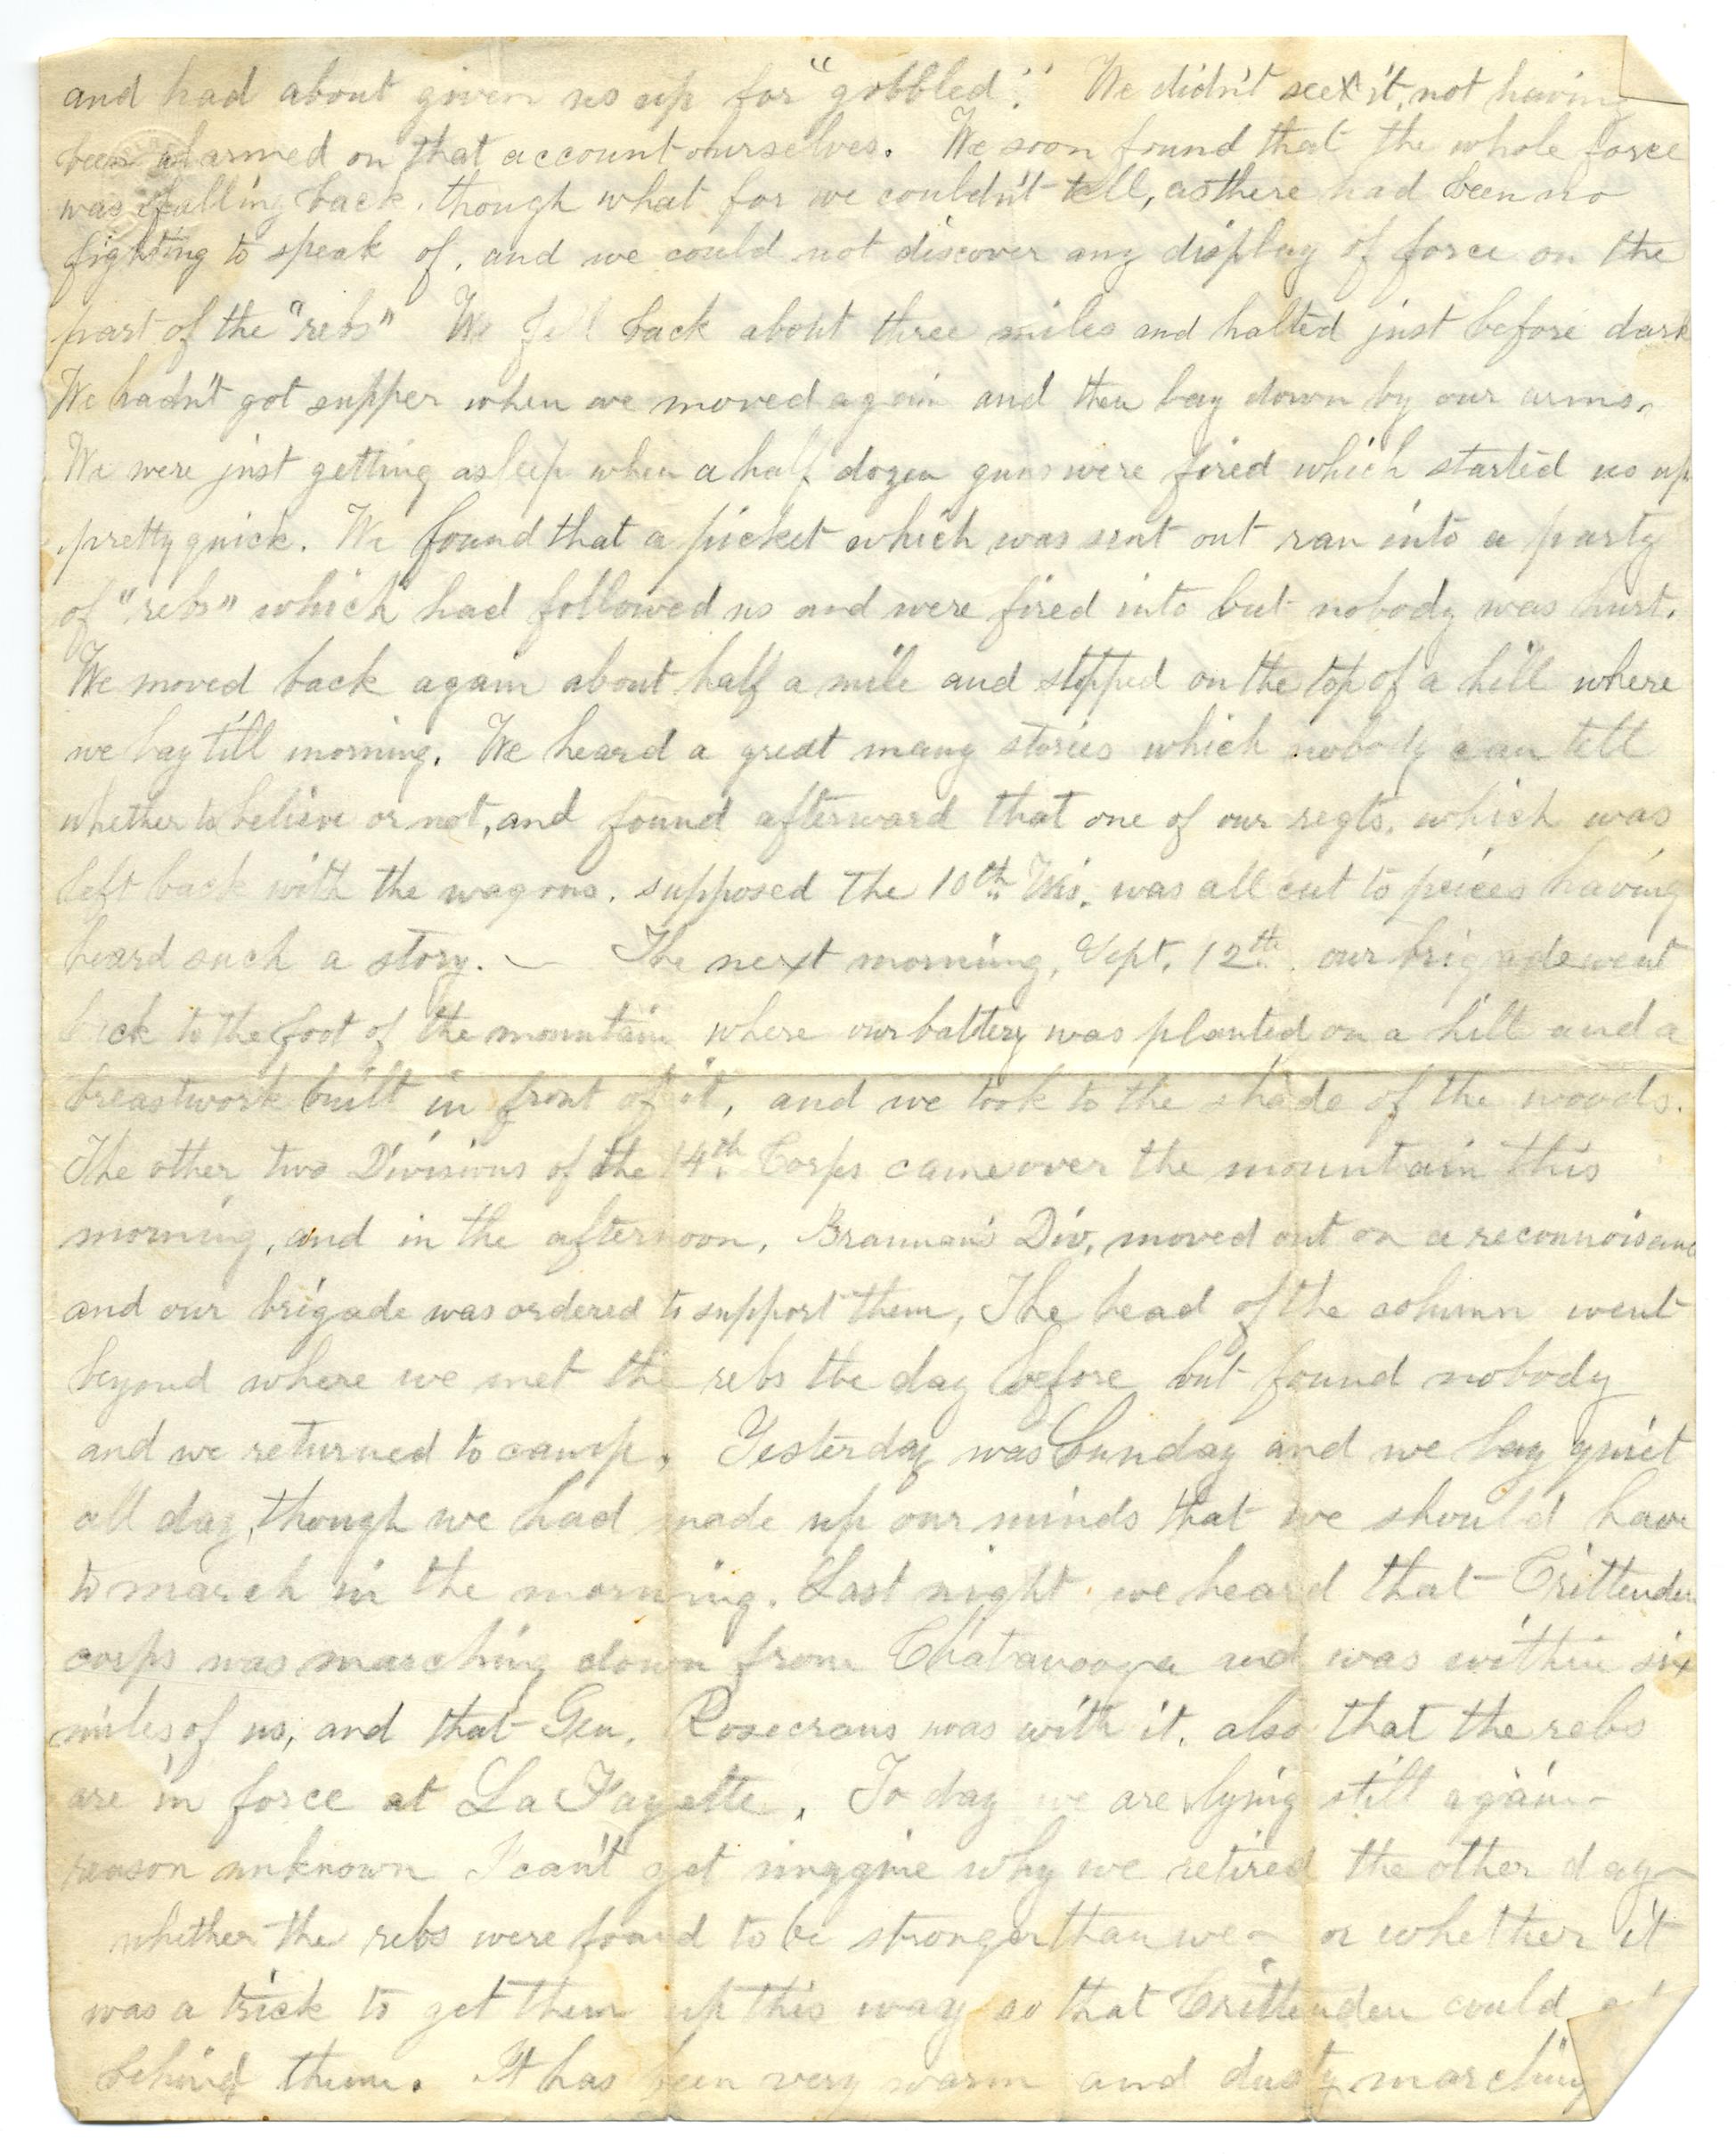 and had about given us up for "gobbled." We didn't see it, not having
been alarmed on that account ourselves. We soon found that the whole force
was falling back, though what for we couldn't tell, as there had been no
fighting to speak of, and we could not discover any display of force on the
part of the "rebs" We fell back about three miles and halted just before dark
We hadn't got supper when we moved again and then lay down by our arms.
We were just getting asleep when a half dozen guns were fired which started us up
pretty quick. We found that a picket which was sent out ran into a party
of "rebs" which had followed us and were fired into but nobody was hurt.
We moved back again about half a mile and stopped on the top of a hill where
we lay till morning. We heard a great many stories which nobody can tell
whether to believe or not, and found afterward that one of our regts. which was
left back with the wagons, supposed the 10th Wis. was all cut to peices having
heard such a story. — The next morning, Sept. 12th. our brigade went
back to the foot of the mountain where our battery was planted on a hill and a
breastwork built in front of it, and we took to the shade of the woods.
The other two Divisions of the 14th. Corps came over the mountain this
morning, and in the afternoon, Brannan's Div. moved out on a reconnoisance
and our brigade was ordered to support them, The head of the column went
beyond where we met the rebs the day before but found nobody
and we returned to camp. Yesterday was Sunday and we lay quiet
all day, though we had made up our minds that we should have
to march in the morning. Last night we heard that Crittenden
corps was marching down from Chatanooga and was within six
miles of us, and that Gen. Rosecrans was with it. also that the rebs
are in force at La Fayette. To day we are lying still again—
reason unknown I can't get why we retired the other day—
whether the rebs were found to be stronger than we— or whether it
was a trick to get them up this way so that Crittenden could get
behind them. It has been very warm and dusty marching